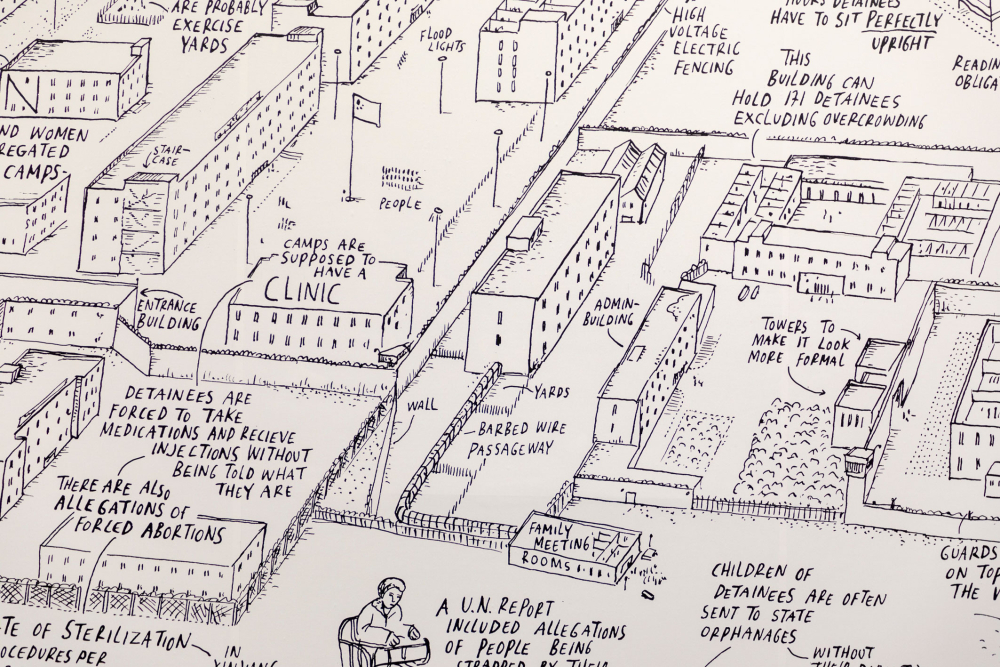 ARE PROBABLY
EXERCISE
YARDS
FLOOD
LIGHTS
HIGH
VOLTAGE
ELECTRIC
FENCING
HOURS DETAINEES
HAVE TO SIT PERFECTLY
UPRIGHT
THIS
BUILDING CAN
HOLD 171 DETAINEES
EXCLUDING OVERCROWDING
WOMEN
CAMPS-
STAIR-
CASE
PEOPLE
CAMPS ARE
SUPPOSED TO
HAVE A
CLINIC
ENTRANCE
BUILDING
ADMIN-
BUILDING
TOWERS TO
MAKE IT LOOK
MORE FORMAL
DETAINEES ARE
FORCED TO TAKE
MEDICATIONS AND RECIEVE
INJECTIONS WITHOUT
BEING TOLD WHAT
THEY ARE
WALL
YARDS
BARBED WIRE
PASSAGEWAY
THERE ARE ALSO
ALLEGATIONS OF
FORCED ABORTIONS
FAMILY
MEETING
ROOMS
GUARDS
ON TOP
THE
CHILDREN OF
DETAINEES ARE OFTEN
SENT TO STATE
ORPHANAGES
WITHOUT
A U.N. REPORT
INCLUDED ALLEGATIONS
OF PEOPLE BEING
STRAPPED BY THEIR
OF STERILIZATION
PER
IN